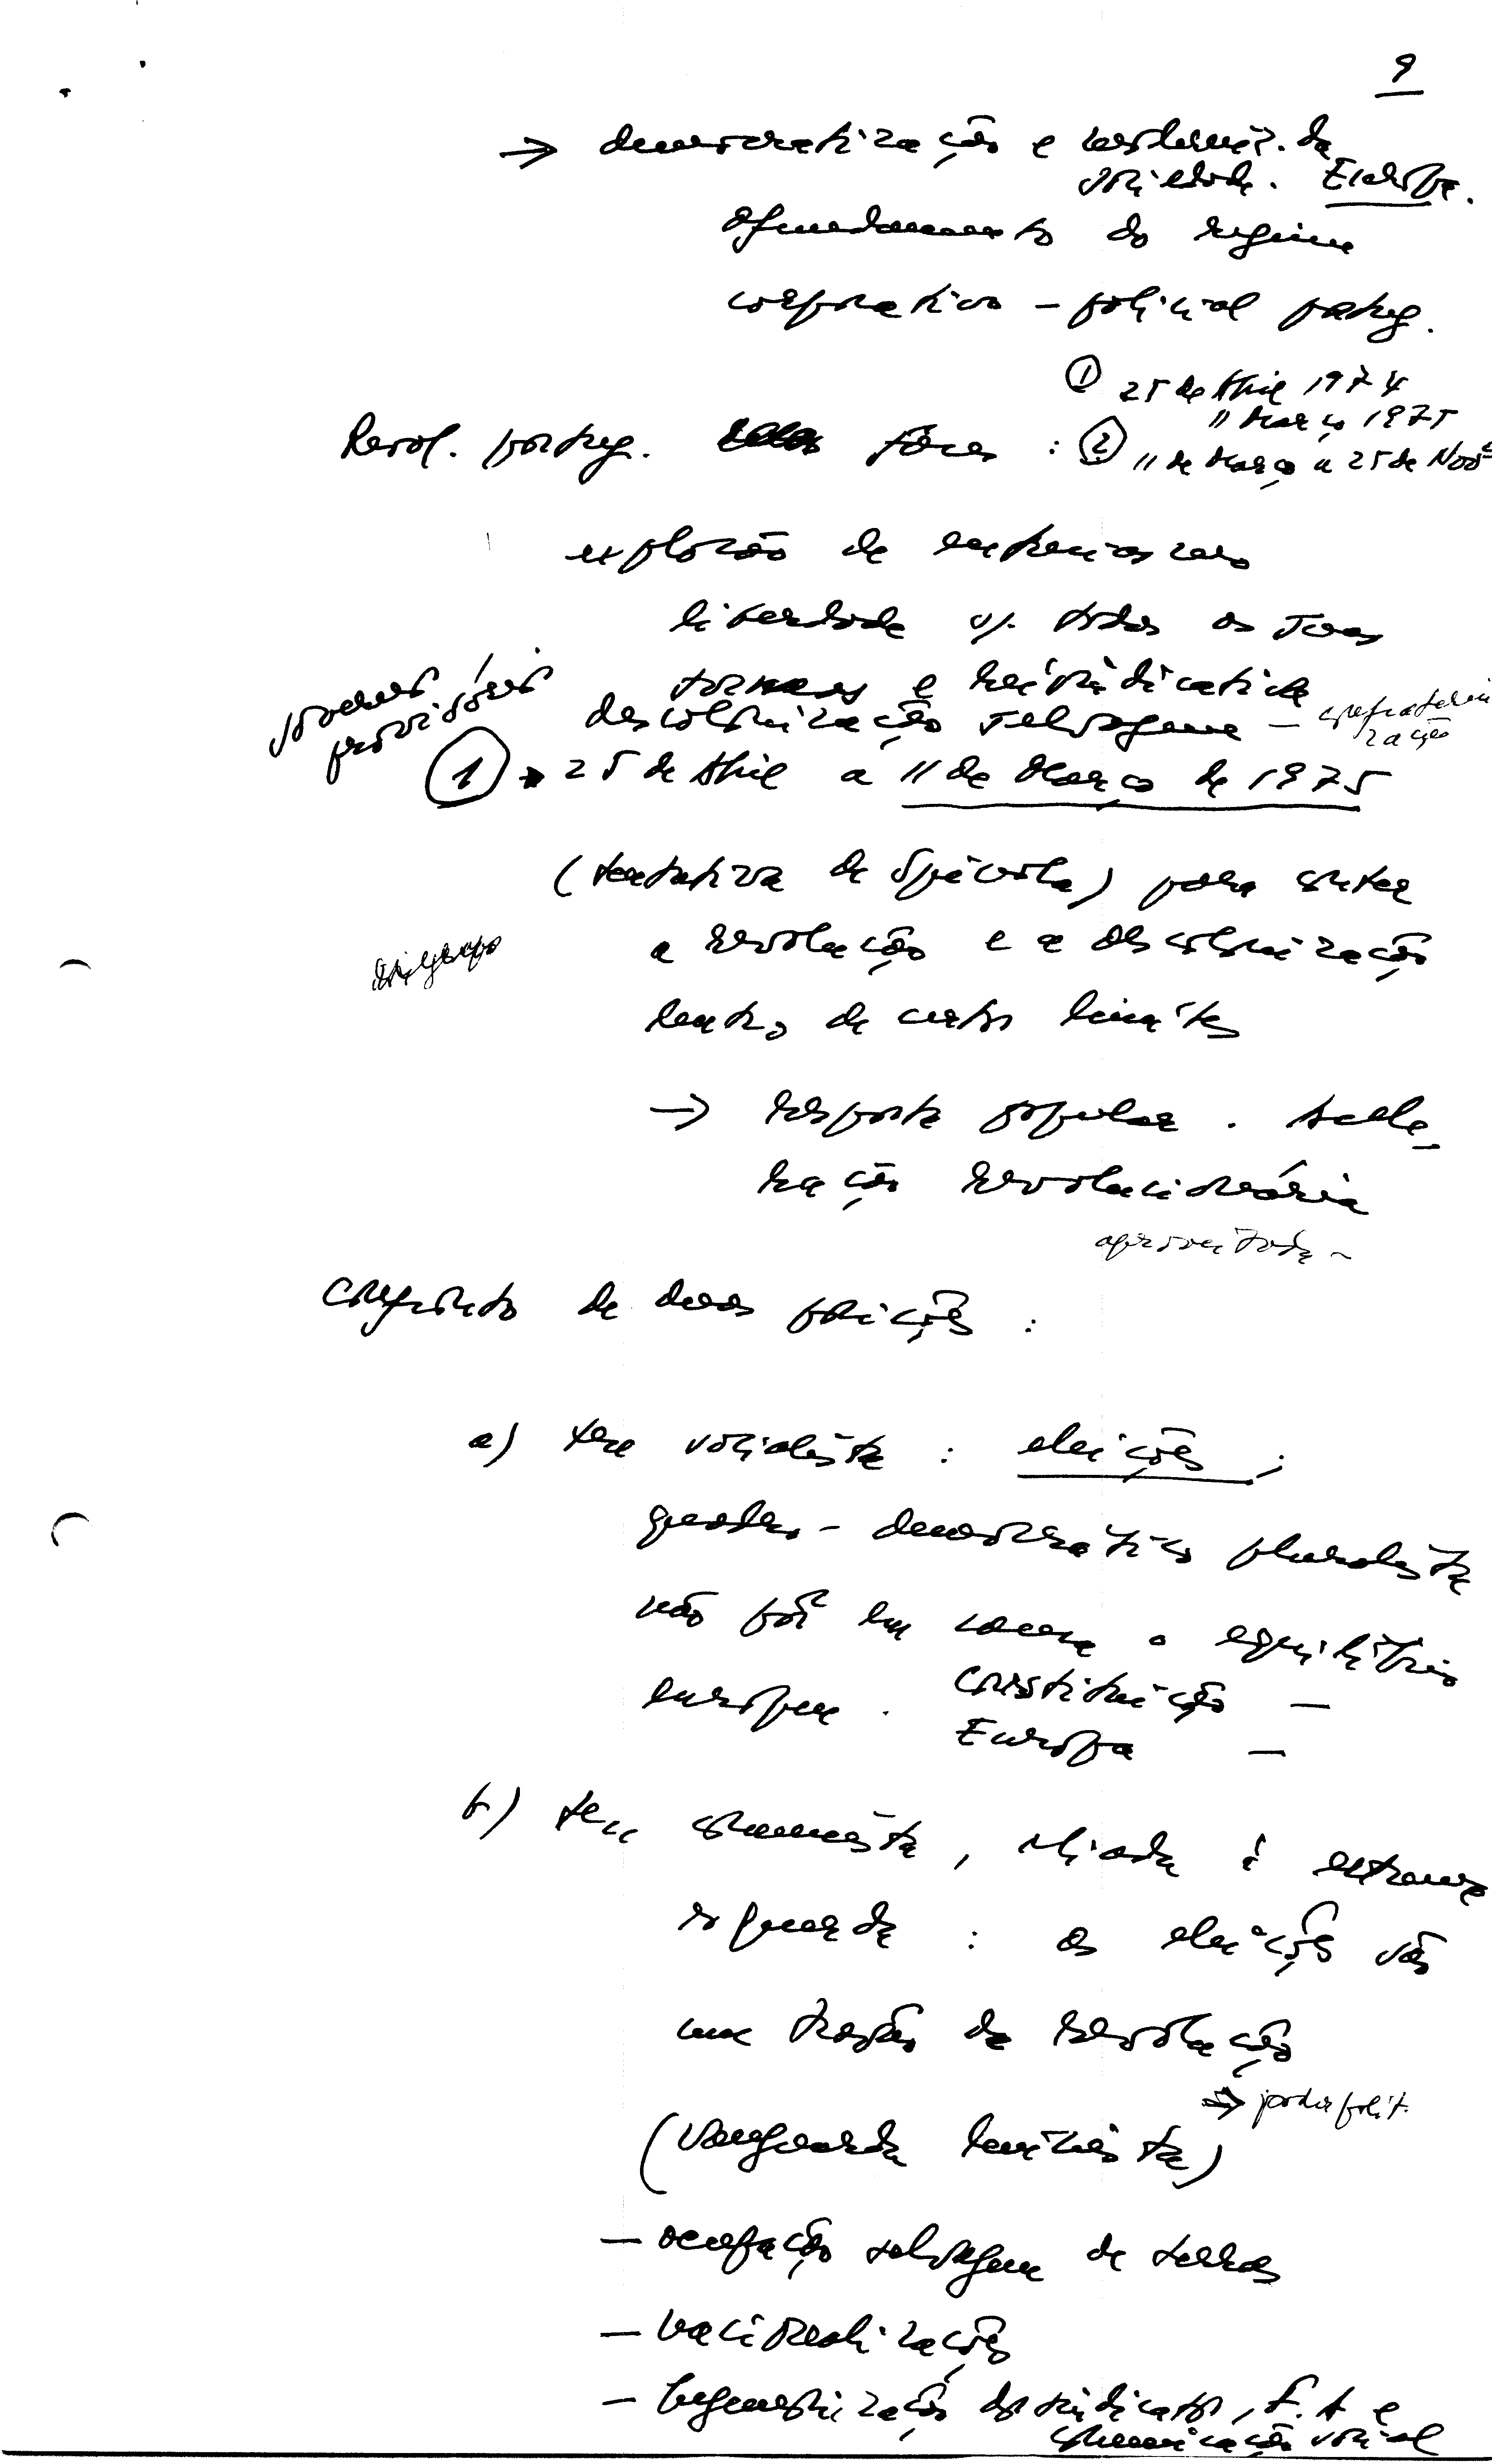 9
→ democratização e moderniz. da
sociedade. Europa.
Afundamento do regime
corporativo - policial portug.
① 25 de Abril 1974
11 Março 1975
Revol. portug. fases : ② 11 de Março a 25 de Nov
explosão de entusiasmo
liberdade c/. todas as suas
formas e reivindicativa
descolonização selvagem -
governos
provisórios
① 25 de Abril a 11 de Março de 1975
(tentativa de Spínola) para conter
a revolução e a descolonização
dentro de certos limites
→ resposta popular. Acele-
ração revolucionária
aproveitada -
Confronto de duas posições :
a) tese socialista : eleições ;
quadro - democrático pluralista
não pôr em causa o equilíbrio
europeu . Constituição -
Europa -
b) tese comunista, aliada à extrema
esquerda : as eleições são
uma traição da revolução
→ poder polít.
(Vanguarda leninista)
- ocupação selvagem de terras
- nacionalizações
- hegemonização dos sindicatos, F. A e
comunicação social